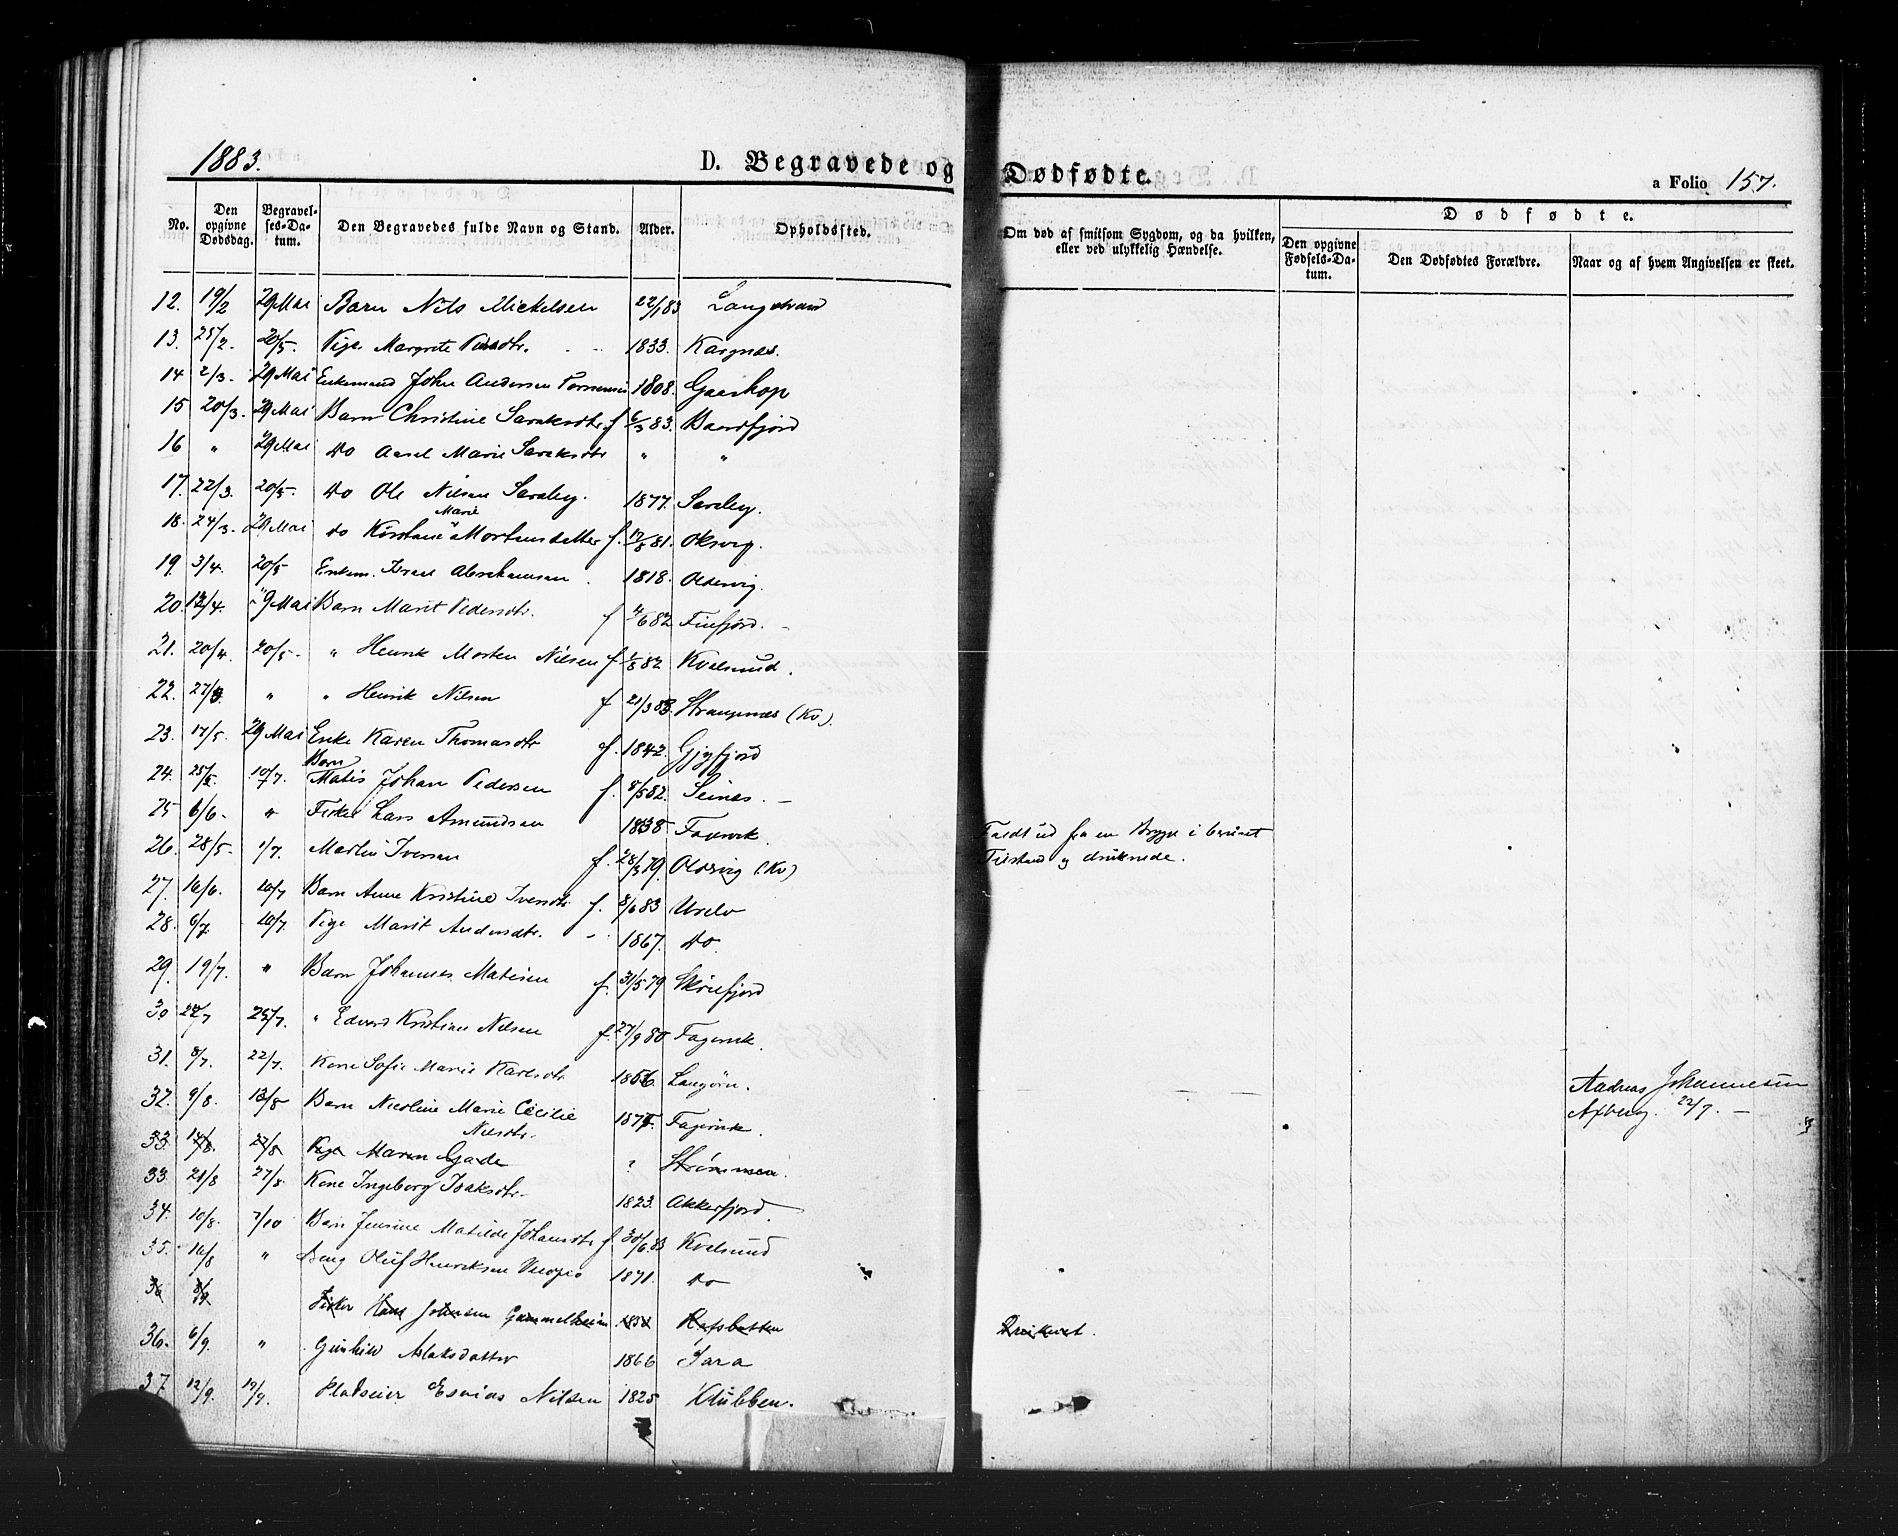 1883.
D. Begravede og Dødfødte.
a Folio 157.
No. Den opgivne Dødsdag. Begravelses-Datum. Den Begravedes fulde Navn og Stand. Alder. Opholdssted. Om død af smitsom Sygdom, og da hvilken, eller ved ulykkelig Hændelse. Dødfødte. Den opgivne Fødsels-Datum. Den Dødfødtes Forældre. Naar og af hvem Angivelsen er skeet.
12. 19/2 29 Mai Barn Nils Mickelsen 22/1 83 Langstrand
13. 25/2. 20/5. Pige Margrete 1833. Kargnæs.
14 2/3. 29 Mai Enkemand John Andersen 1808. Gaashop
15 20/3. 29 Mai Barn Christine Saraksdtr. f 6/3 83. Baardfjord
16 " 29 Mai do Aasel Marie Saraksdtr " "
17. 22/3. 20/5. do Ole Nilsen Saraby. 1877. Saraby.
18. 24/3. 29 Mai do Kirstane Marie Mortensdatter f. 17/8 81. Oksvig.
19. 3/4. 20/5 Enkem. Israel Abrahamsen 1818. Oldervig.
20. 12/4. 29 Mai Barn Marit Pedersdtr. f 4/6 82 Finfjord.
21. 20/4. 20/5. " Henrik Morten Nilsen f 1/8 82 Kvalsund.
22. 27/3. " " Henrik Nilsen f 21/3 83. Strangnæs (Kv).
23. 17/5. 29 Mai Enke Karen Thomasdtr f. 1842. Gjøfjord
24. 25/5. 10/7. Barn Matis Johan Pedersen f. 8/5 82. Seines.
25 6/6. " Fisker Lars Amundsen 1838. Fagervik. Faldt ud fra en Brygge i beruset
26. 28/5. 1/7. Martin Iversen f. 28/3 79. Oldervig (Kv) Tilstand og druknede.
27. 16/6. 10/7 Barn Anne Kristine Iversdtr. f. 8/6 83 Ureelv
28. 6/7. 10/7. Pige Marit Andersdtr. 1867. do.
29. 19/7. " Barn Johannes Mathisen f. 31/5 79 Skinfjord
30 22/7 25/7. " Edvard Kristian Nilsen f. 27/9 80 Fagervik.
31. 8/7. 22/7. Kone Sofie Marie Karlsdtr 1856. Langøen. Andreas Johannesen
32. 9/8. 13/8 Barn Nicoline Marie Cecilie Nilsdtr. 1875. Fagervik. Axberg. 22/7.
33. 14/8. 27/8 Pige Maren Gade ? Strømmen.
33. 21/8 27/8. Kone Ingeborg Isaksdtr. 1823. Akkerfjord.
34. 10/8. 7/10 Barn Jensine Matilde Johansdtr f. 30/6 83 Kvalsund
35. 16/8 " Dreng Oluf Henriksen 1871. do
36 3/9 Fisker Hans Johnsen Gammelheim 1851 Rafsbotten Druknet.
36. 6/9. " Gunhild Aslaksdatter 1866 Sara
37 12/9. 19/9. Pladseier Esaias Nilsen 1825 Klubben.